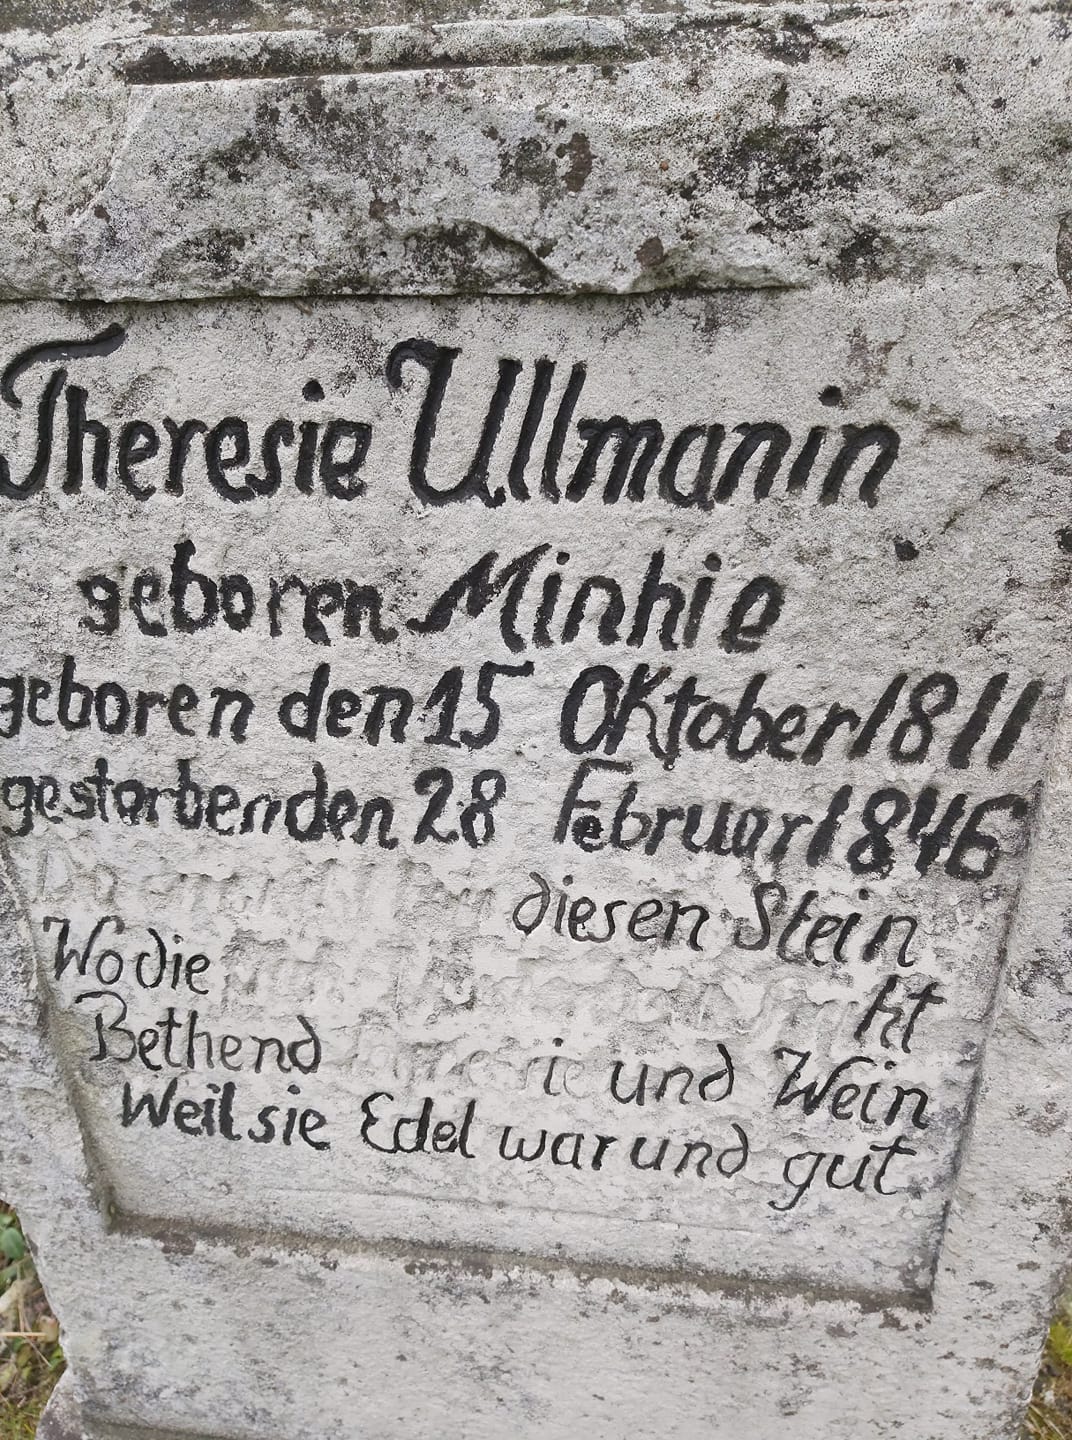 Theresie Ullmanin
geboren Minhie
geboren den 15 Oktober 1811
gestorben den 28 Februar 1846
diesen Stein
Wo die ht
Bethend sie und Wein
Weil sie Edel war und gut